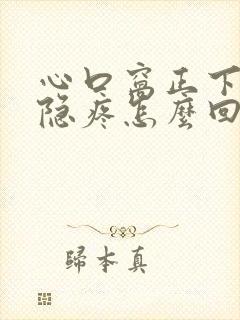 心口窝正下
隐疼怎麽回
歸本真